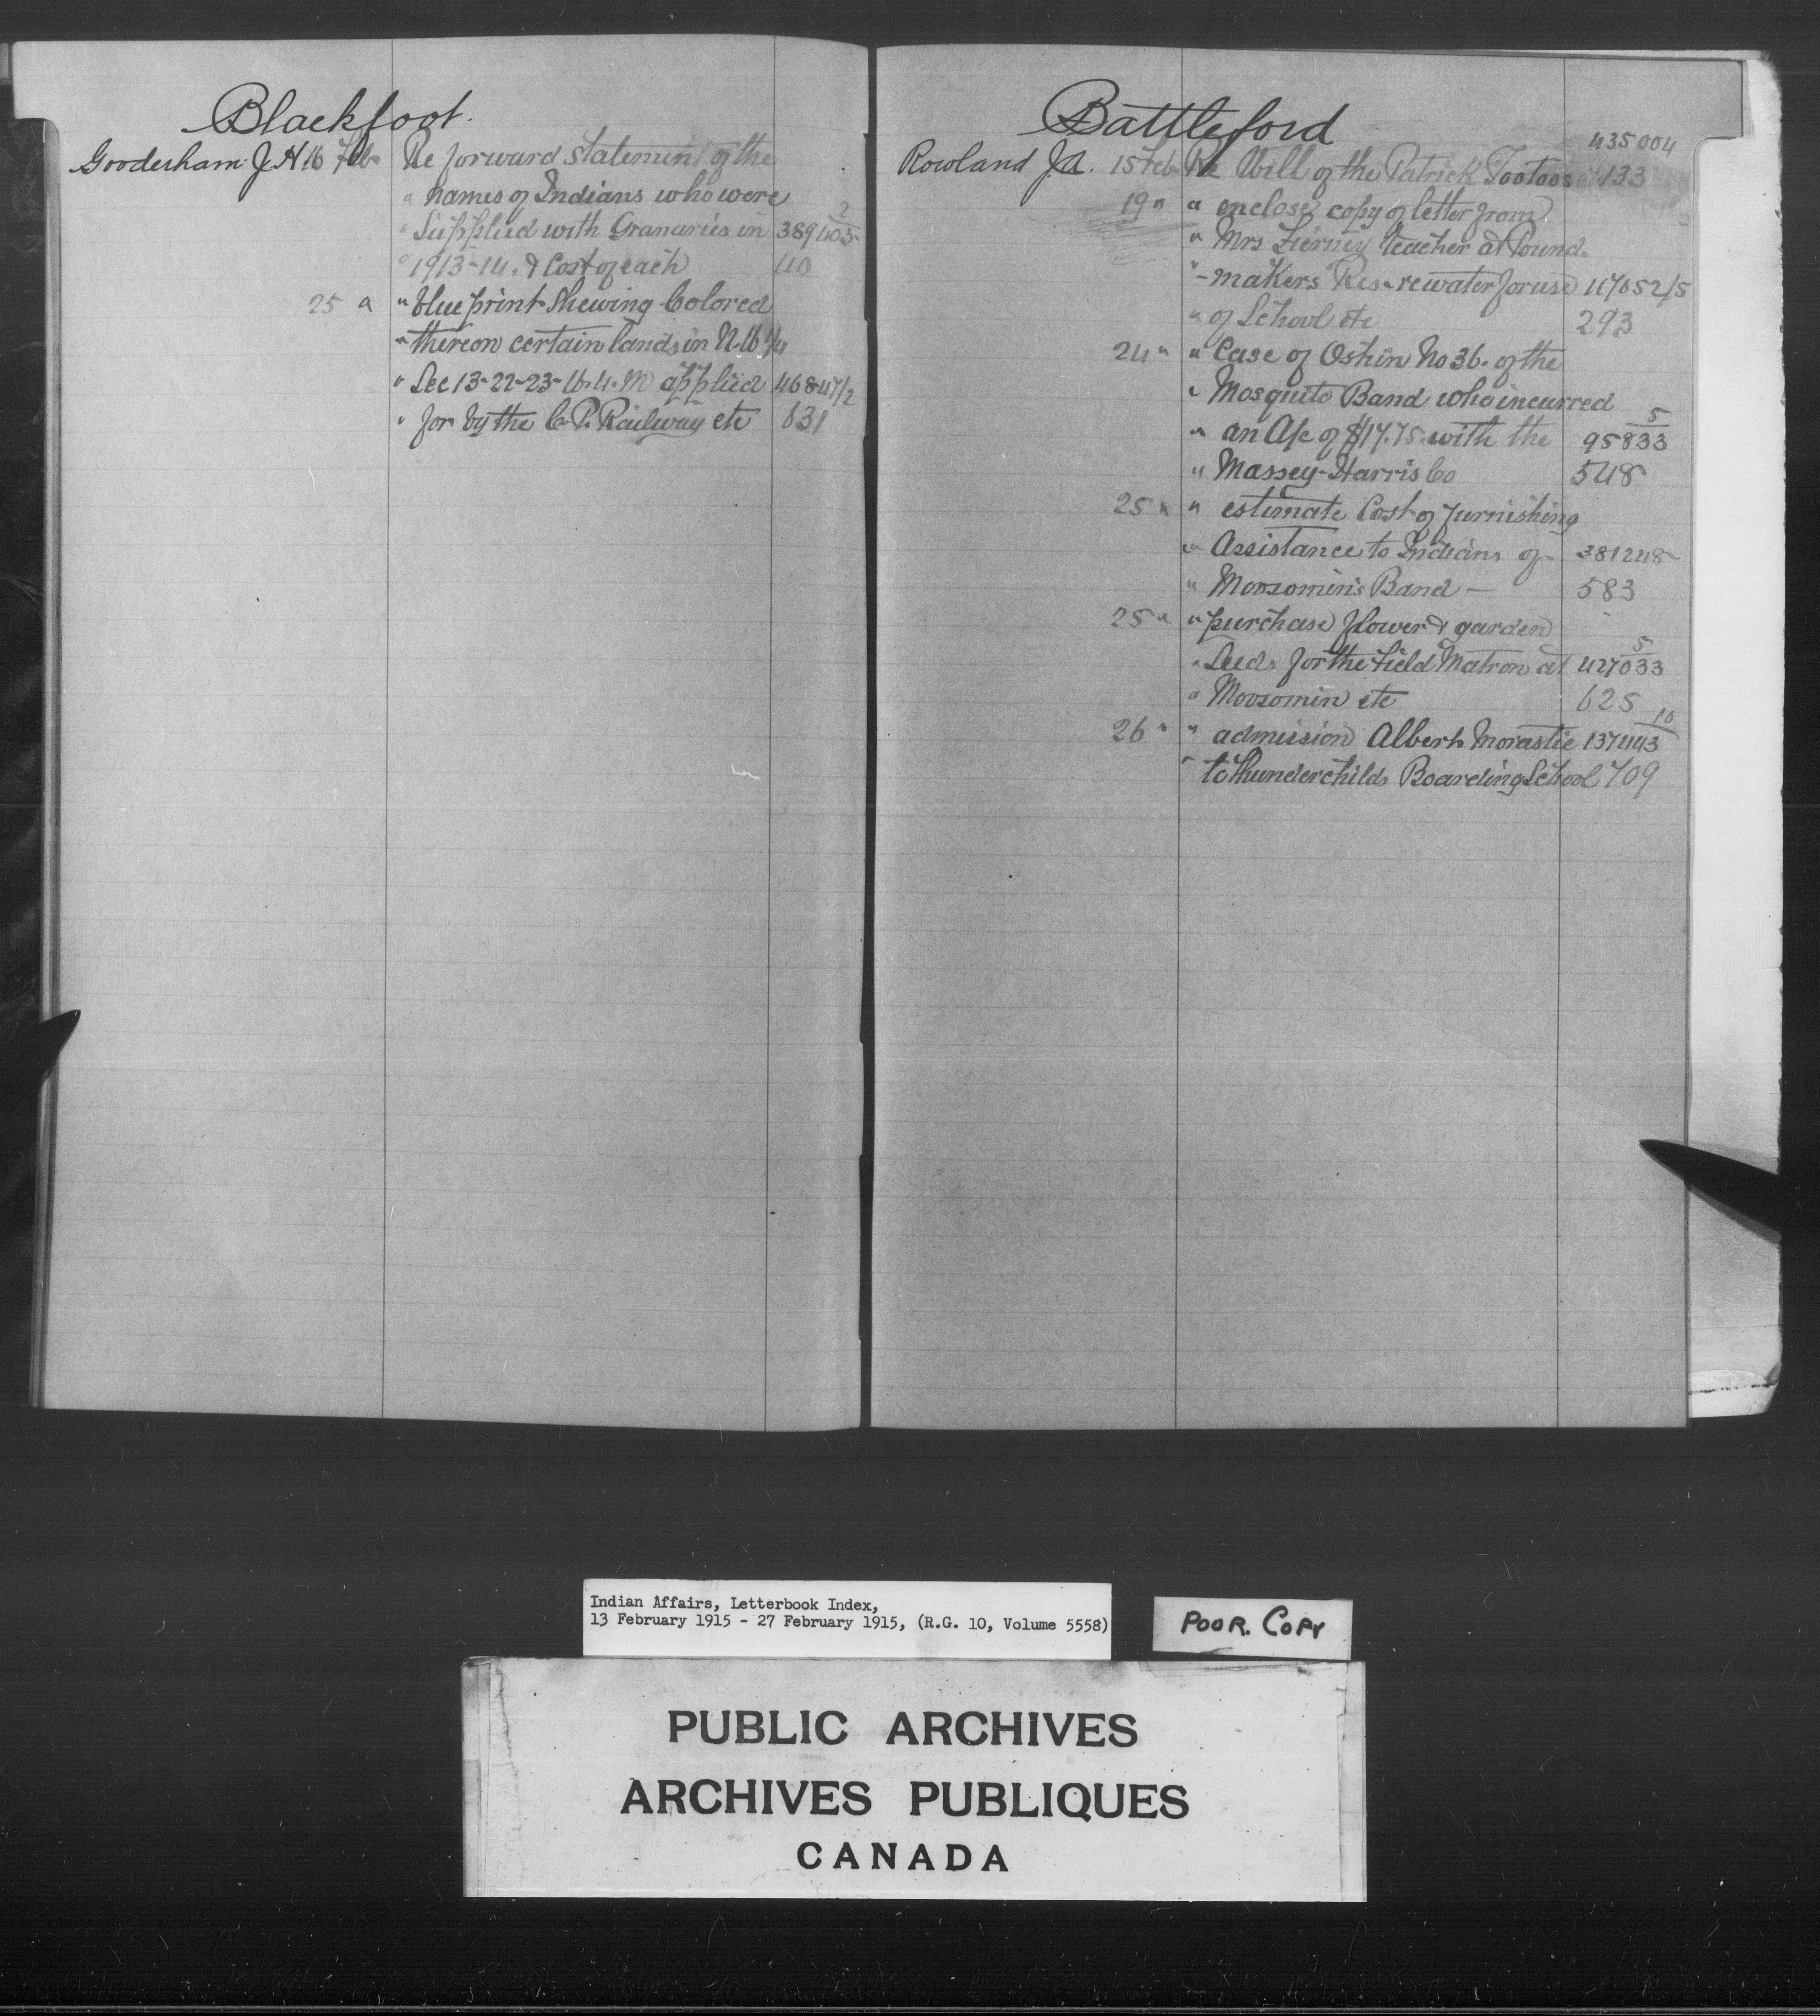 Blackfoot.
Gooderham J. H 16 Feb Re forward statement of the
" names of Indians who were
" Supplied with Granaries in 389403-2
" 1913-14. & Cost of each 40
25 " " blue print shewing Colored
" thereon certain lands in N.W 1/4
" Sec 13-22-23-W.4.M applied
" for by the C.P. Railway etc 631
Battleford
435004
Rowland J.A. 15 Feb Re Will of the Patrick Tootoos 133
19 " " enclose copy of letter from
" Mrs Tierney teacher at Pound-
" -makers Res. re water for use
" of School etc 293
24 " " Case of Oskin No 36. of the
" Mosquito Band who incurred
" an A/c of $17.75. with the 95833-5
" Massey-Harris Co 548
25 " " estimate Cost of furnishing
" Assistance to Indians of 381248
" Moosomin's Band - 583
25 " " purchase flower & garden
" Seeds for the Field Matron at 427033-5
" Moosomin etc 625
26 " " admission Albert Morastie 137443-10
" to Thunderchilds Boarding School 709
Indian Affairs, Letterbook Index,
13 February 1915 - 27 February 1915, (R.G. 10, Volume 5558)
POOR. COPY
PUBLIC ARCHIVES
ARCHIVES PUBLIQUES
CANADA